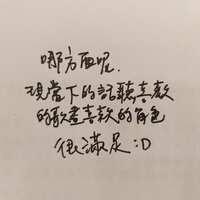 哪方面呢.
現當下的話聽喜歡
的歌畫喜歡的角色
很滿足:D